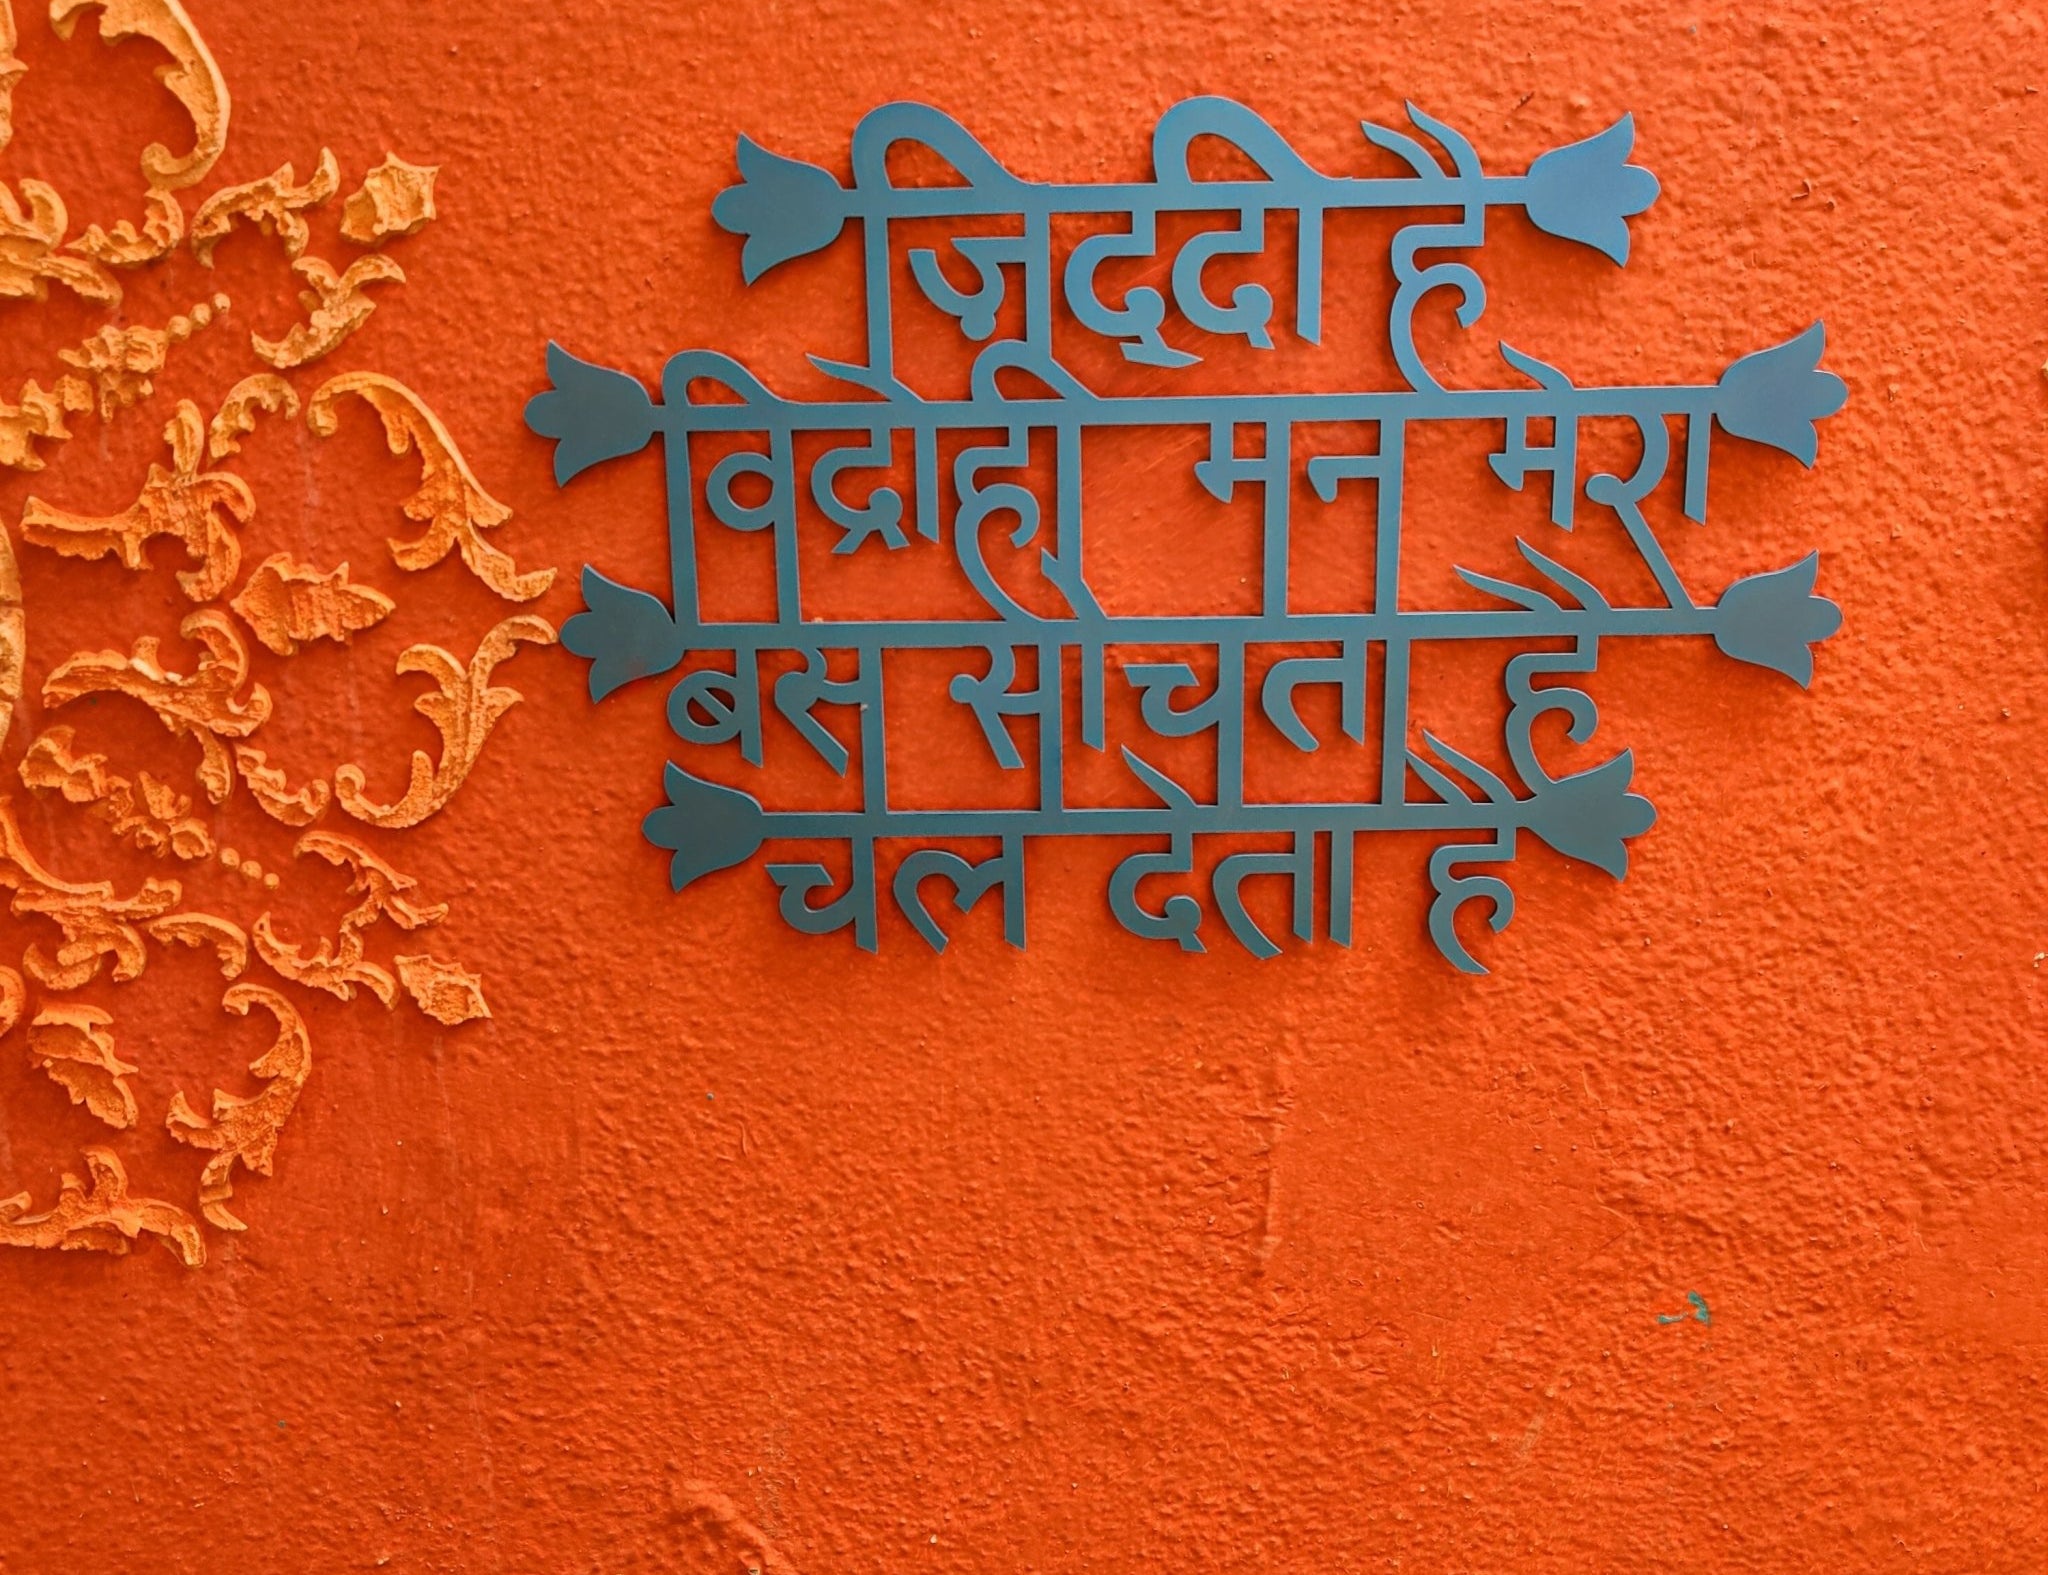 ज़िद्दी है
विद्रोही मन मेरा
बस सोचता है
चल देता है